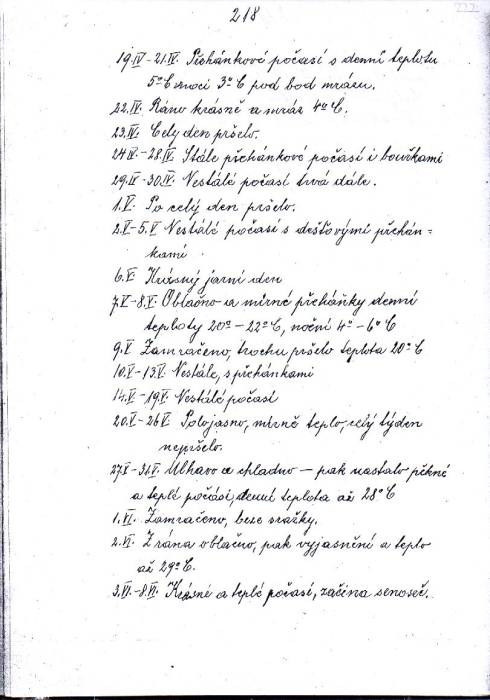 218
19.IV-21.IV. Přehánkové počasí s denní teplotu
5°C v noci 3°C pod bod mrázu.
22.IV. Ráno krásně a mráz 4°C.
23.IV. Cely den pršelo.
24 IV.-28.IV. Stále přehánkové počasí i bouřkami
29.IV-30.IV. Nestálé počasí trvá dále.
1.V. Po celý den pršelo.
2.V-5.V Nestálé počasí s dešťovými přehán=
kami.
6.V. Krásný jarní den
7.V-8.V. Oblačno a mírné přeháňky denní
teploty 20°-22°C, noční 4°-6°C
9.V Zamračeno, trochu pršelo teplota 20°C
10.V-13.V. Nestále, s přehánkami
14.V-19.V. Nestálé počasí
20.V-26V. Polojasno, mírně teplo, celý týden
nepršelo.
27.V-31.V. Mlhavo a chladno — pak nastalo pěkné
a teplé počási, denní teplota až 28°C
1.VI. Zamračeno, beze srážky.
2.VI. Z rána oblačno, pak vyjasnění a teplo
až 29°C.
3.VI.-8.VI. Krásné a teplé počasí, začína senoseč.